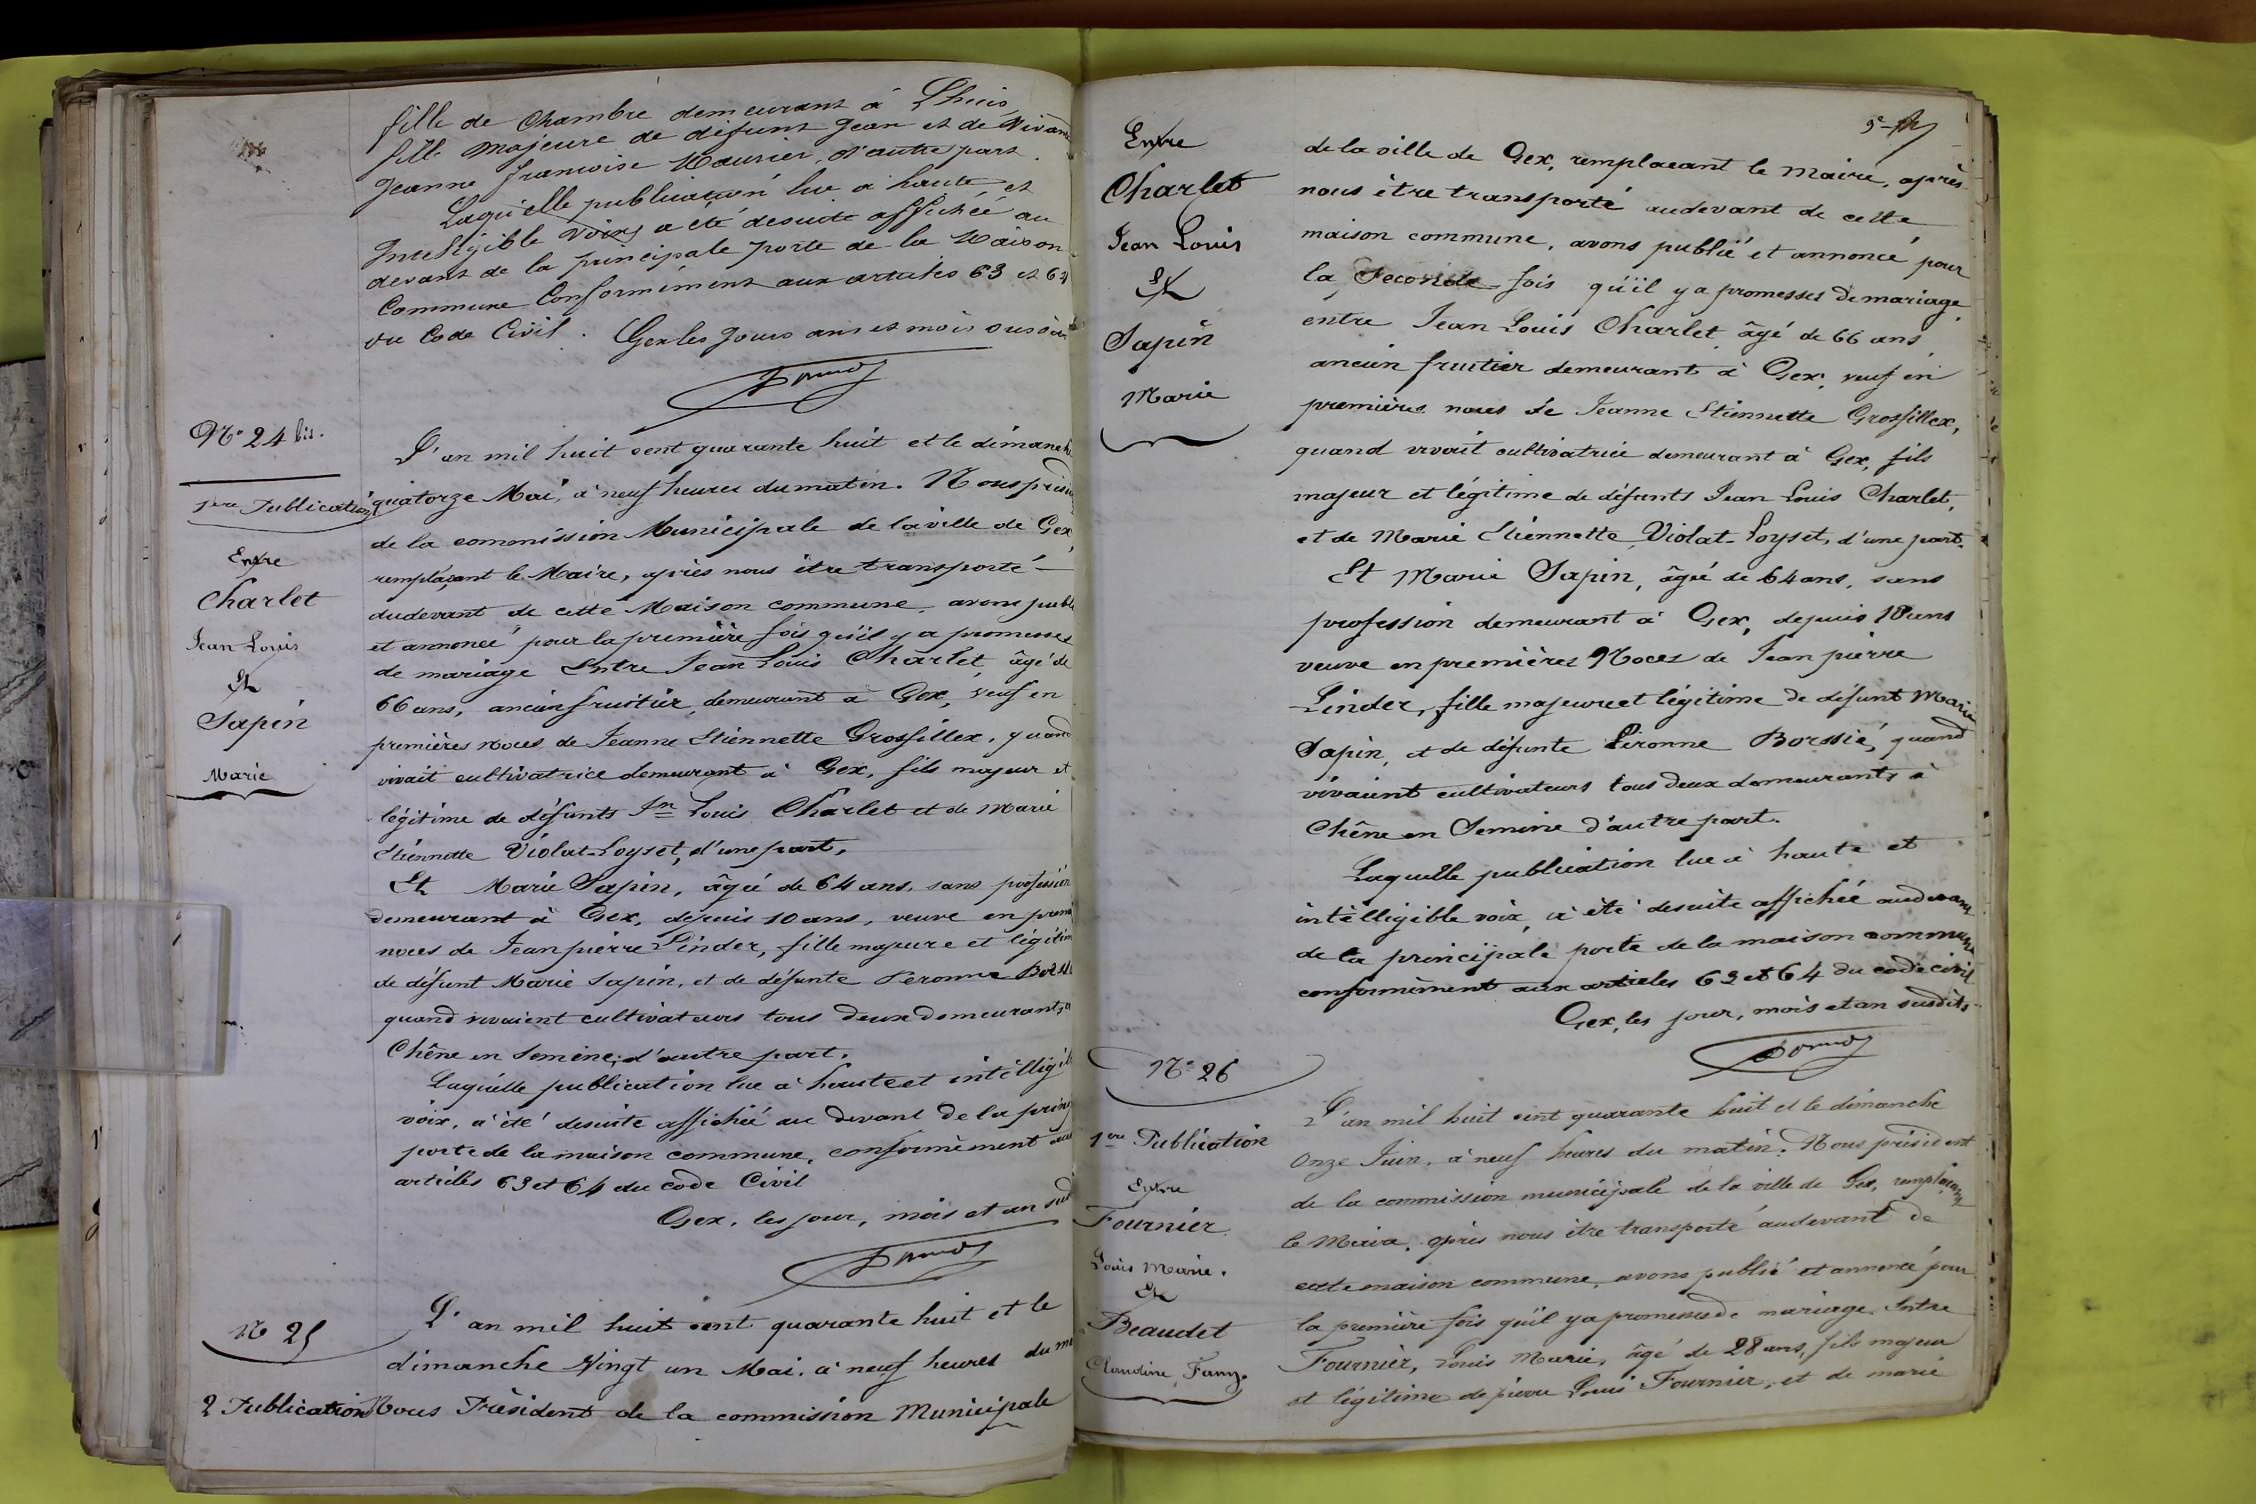 fille de Chambre demeurant à Lhuis
fille majeure de défunt Jean et de Vivante
Jeanne françoise Maurier, d'autre part.
Laquelle publication lue à haute et
Inteligible voix, a été desuite affichée au
devant de la principale porte de la Maison
Commune Conformément aux articles 63 et 64
du Code Civil. Gex les jours an et mois susdit
N° 24 bis.
1ere Publication
Entre
Charlet
Jean Louis
Et
Sapin
Marie
L'an mil huit cent quarante huit et le dimanche
quatorze Mai, à neuf heures du matin. Nous présid
de la commission Municipale de la ville de Gex,
remplaçant le Maire, après nous être transporté
audevant de cette Maison commune, avons publi
et annoncé pour la première fois qu'il y a promesses
de mariage Entre Jean Louis Charlet, âgé de
66 ans, ancien fruitier, demeurant à Gex, veuf en
premières noces de Jeanne Etiennette Grosfillex, quand
vivait cultivatrice demeurant à Gex, fils majeur et
légitime de défunts Jn Louis Charlet et de Marie
Etiennette Violat-Loyset, d'une part,
Et Marie Sapin, âgée de 64 ans, sans profession
demeurant à Gex, depuis 10 ans, veuve en premi
noces de Jean pierre Linder, fille majeure et légitim
de défunt Marie Sapin, et de défunte Peronne Borssi
quand vivaient cultivateurs tous deux demeurants à
Chêne en Semine, d'autre part.
Laquelle publication lue à haute et intelligib
voix, a été desuite affichée au devant de la princ
porte de la maison commune, conformément aux
articles 63 et 64 du code Civil
Gex, les jour, mois et an sud
N° 25
2 Publication
L'an mil huit cent quarante huit et le
dimanche Vingt un Mai, à neuf heures du ma
Nous Président de la commission Municipale
Entre
Charlet
Jean Louis
Et
Sapin
Marie
de la ville de Gex, remplacant le Maire, après
nous être transporté audevant de cette
maison commune, avons publié et annoncé pour
la Seconde fois qu'il y a promesses de mariage
entre Jean Louis Charlet âgé de 66 ans
ancien fruitier demeurant à Gex, veuf en
premières noces de Jeanne Etiennette Grosfillex,
quand vivait cultivatrice demeurant à Gex, fils
majeur et légitime de défunts Jean Louis Charlet,
et de Marie Etiennette Violat-Loyset, d'une part.
Et Marie Sapin, âgée de 64 ans, sans
profession demeurant à Gex, depuis 10 ans
veuve en premières Noces de Jean pierre
Linder, fille majeure et légitime de défunt Marie
Sapin, et de défunte Péronne Borssié, quand
vivaient cultivateurs tous deux demeurants à
Chêne en Semine d'autre part.
Laquelle publication lue à haute et
intelligible voix, a été desuite affichée audevant
de la principale porte de la maison commune
conformément aux articles 63 et 64 du code civil
Gex, les jour, mois et an susdits.
N° 26
1ere Publication
Entre
Fournier
Louis Marie.
Et
Beaudet
Claudine, Fany.
L'an mil huit cent quarante huit et le dimanche
Onze Juin, à neuf heures du matin. Nous président
de la commission municipale de la ville de Gex, remplaçant
le Maire, après nous être transporté audevant de
cette maison commune, avons publié et annoncé pour
la première fois qu'il y a promesses de mariage, Entre
Fournier, Louis Marie, âgé de 28 ans, fils majeur
et légitime de pierre Louis Fournier, et de marie